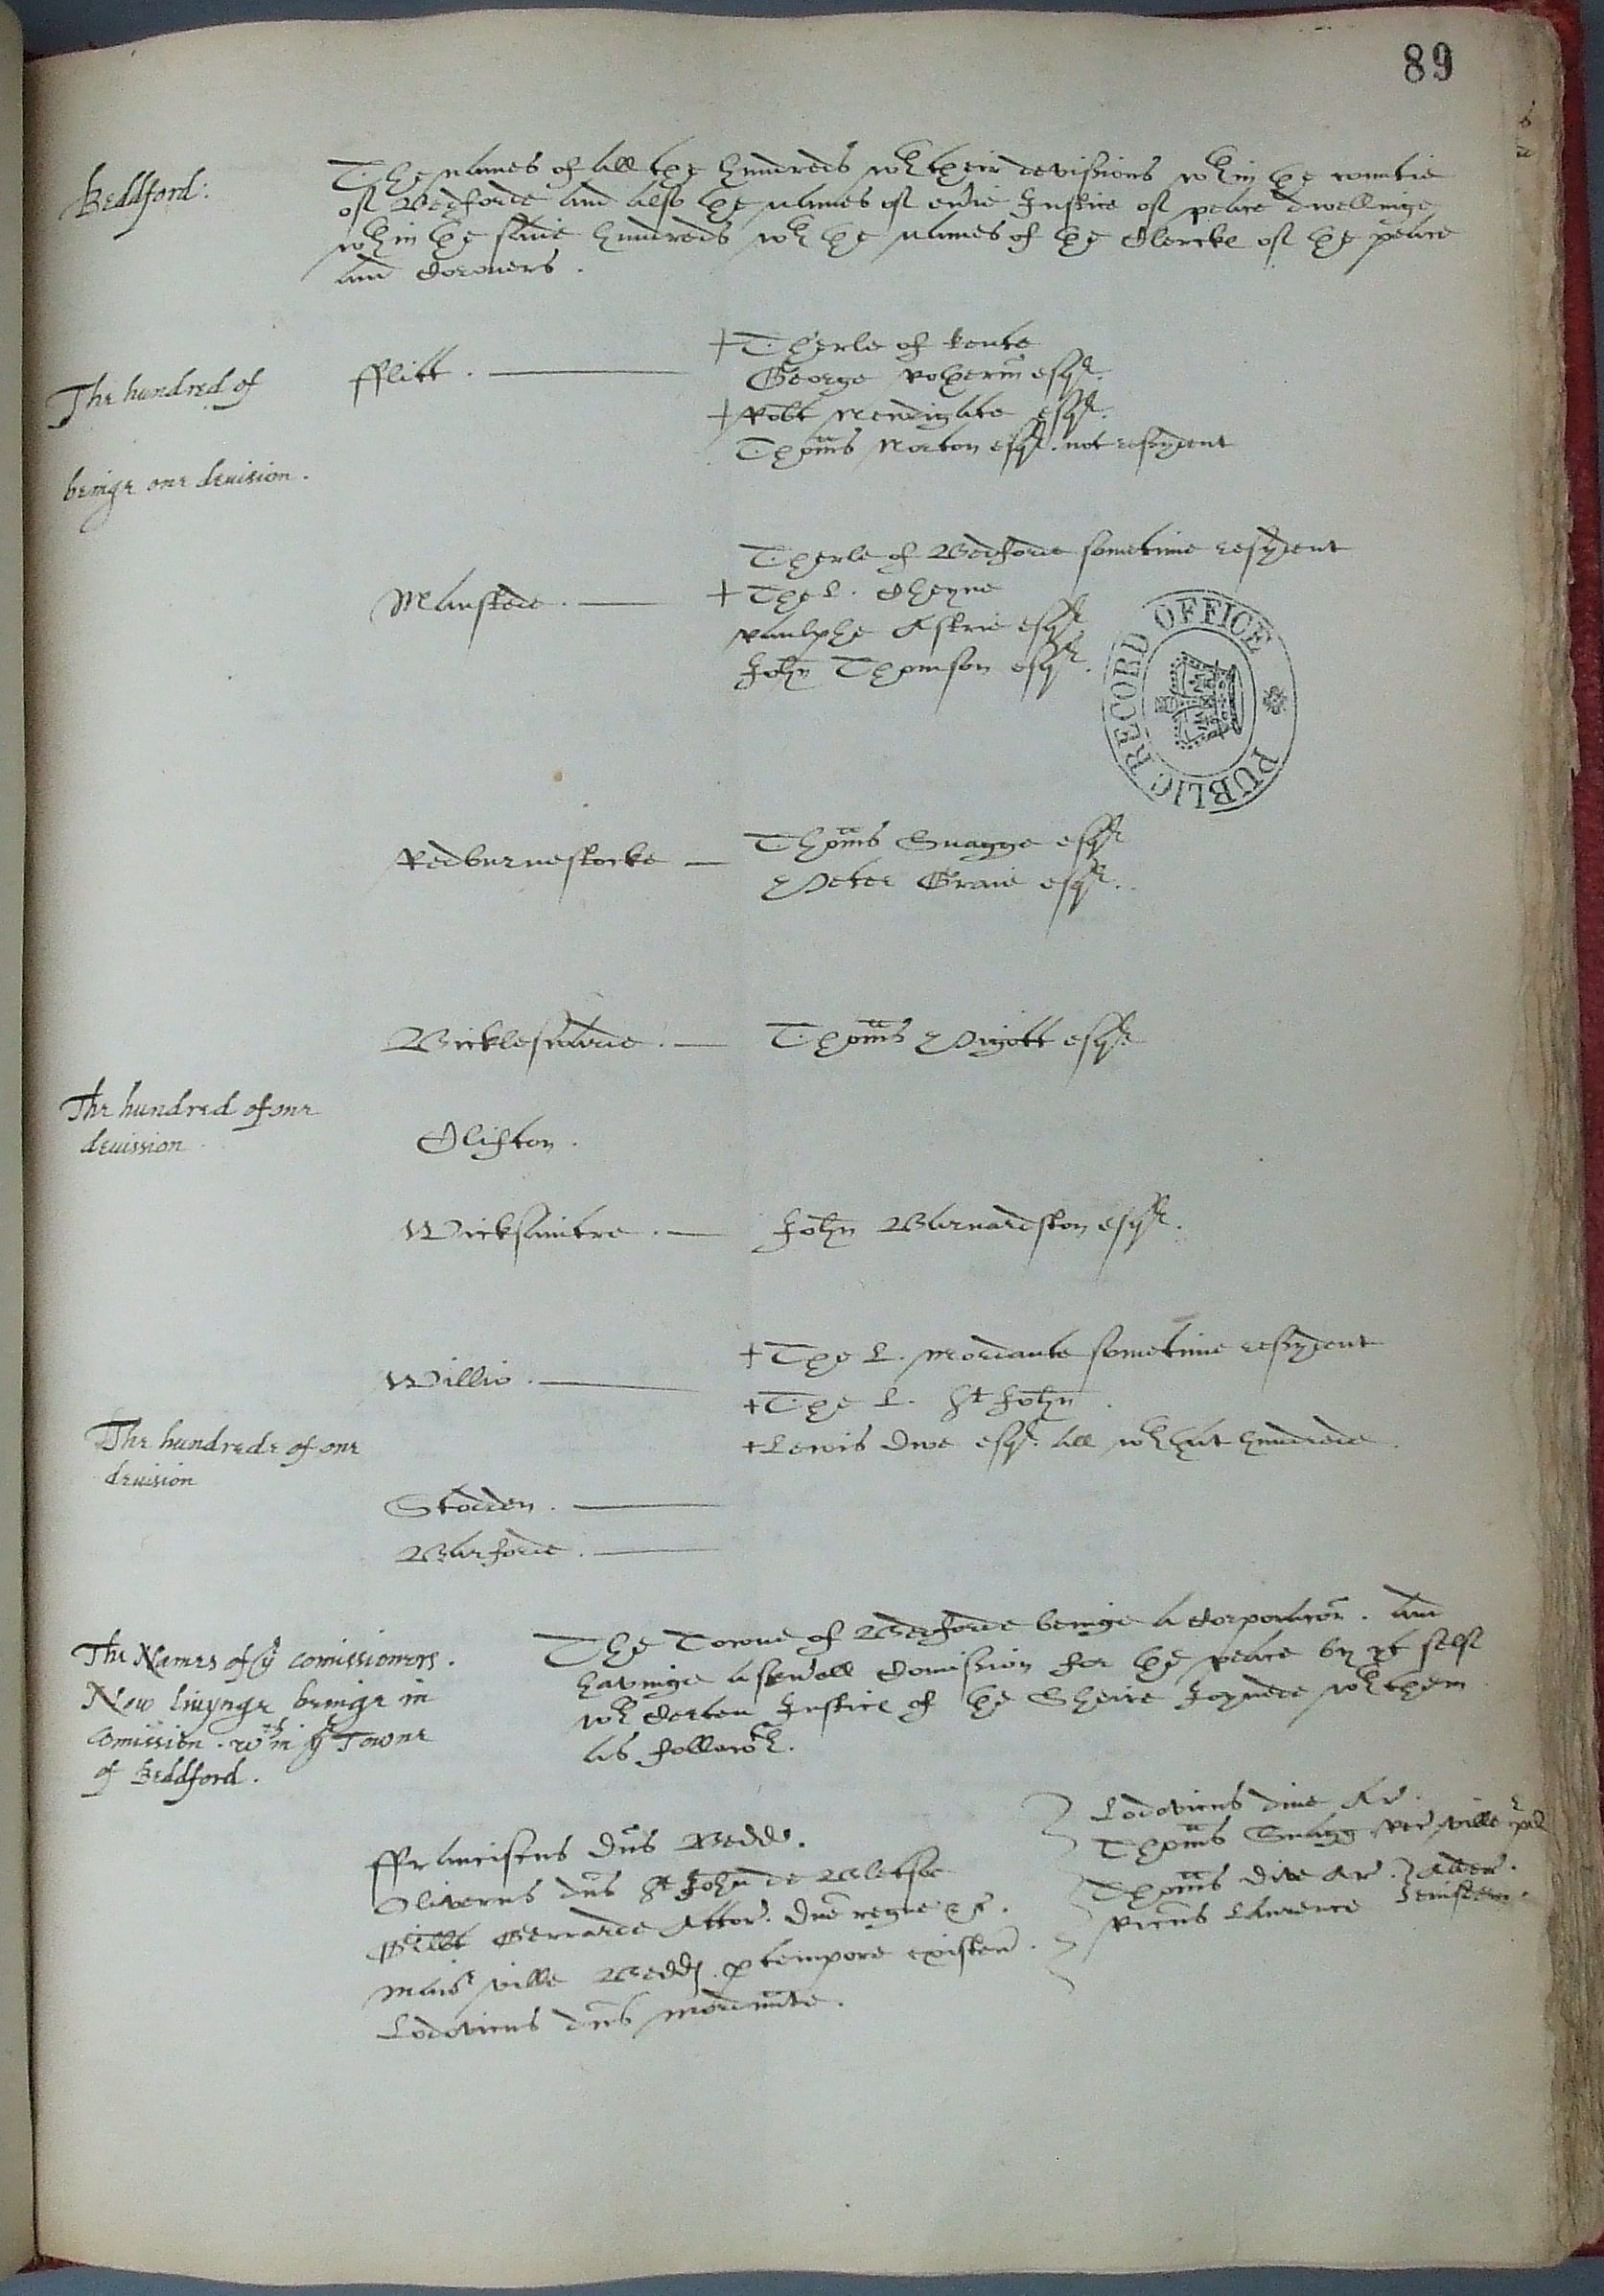 89
Beddford:
The names of all the hundreds wth their devisions wthin the countie
of Bedforde and also the names of eṽie Justice of peace dwellinge
wthin the same hundreds wth the names of the Clercke of the peace
and Coroners.
The hundred of
fflitt.
+ Therle of kente
George Rotherm̃ esqr.
+ Robt Newdigate esqr.
Thom̃s Norton esqr. not resydent
beinge one deuision.
Therle of Bedforde sometime resydent
Manshede.
+ The L. Cheyne
Raulphe Astrie esqr
John Thomson esqr.
PUBLIC RECORD OFFICE
Redburnestocke
Thom̃s Snagge esqr
Peter Graie esqr.
Bickleswade.
Thom̃s Pigott esqr
The hundred of one
deuission
Clifton.
Wicksamtre.
John Barnardston esqr.
+ The L. Mordante sometime resydent
Willie.
+ The L. St John.
+ Lewis Dive esqr. all wth that hundrede.
The hundrede of one
deuision
Stodden.
Barforde.
The Names of ye comissioners.
Now livynge beinge in
Comission. wthin ye Towne
of Beddford.
The Towne of Bedforde beinge a Corporacõn. and
havinge a seṽall Comission for the peace by yt selfe
wth Certen Justice of the Sheire Joynede wth them
as followth.
ffranciscus Dñs Bedd.
Oliverus dñs St John de Bletsoe
Gilbt Gerrarde Attor. Dñe regne &c.
Maior ville Bedd. p tempore existen.
Lodovicus dñs mordñte.
Lodovicus dive Ar.
Thom̃s Snagg ville
Thom̃s dive Ar.
Ricũs Laurence